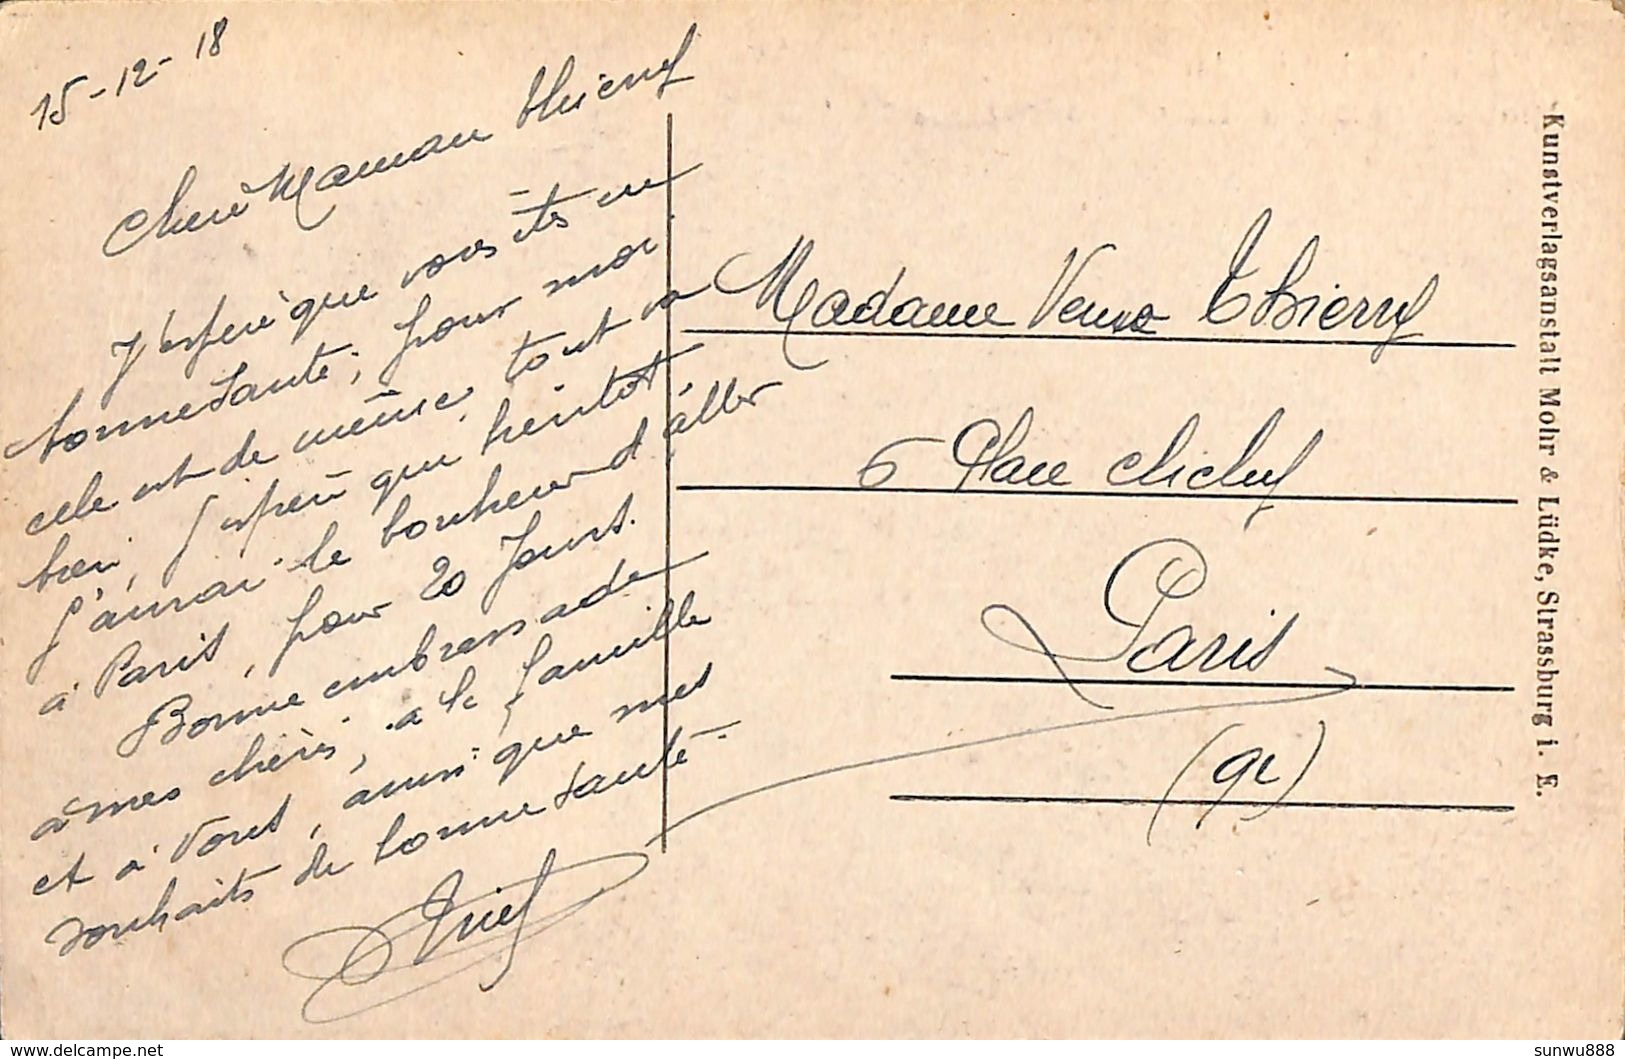 15-12-18
Chere Maman thierry
J'espere que vous êtes en
bonne santé, pour moi
cela est de même, tout va
bien, J'espere que bientot
j'aurai le bonheur d'aller
à Paris, pour 20 Jours.
Bonne embrassade
à mes chéris, a la famille
et à Vous, ainsi que mes
souhaits de bonne santé.
Madame Veuve Thierry
6 Place Clichy
Paris
(9e)
Kunstverlagsanstalt Mohr & Lüdke, Strassburg i. E.
delcampe.net
sunwu888